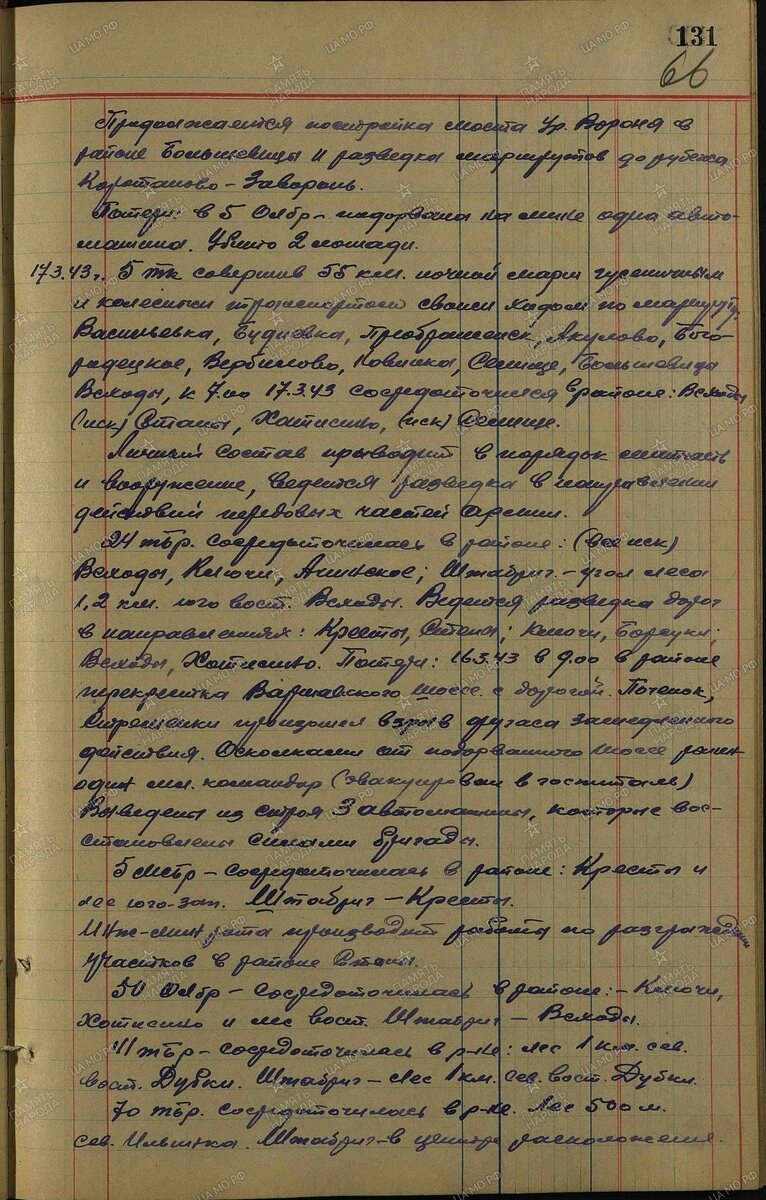 131
66
Продолжается постройка моста ч/р. Вороня в
районе Большевицы и разведка маршрутов до рубежа
Коротаново – Заворонь.
Потери: в 5 Омбр – подорвана на мине одна авто-
машина. Убито 2 лошади.
17.3.43 г. 5 тк совершив 55 км. ночной марш гусеничным
и колесным транспортом своим ходом по маршруту:
Васильевка, Будневка, Преображенск, Акулово, Бого-
родецкое, Вербилово, Новинка, Селище, Большевицы
Всходы, к 7.00 17.3.43 сосредоточился в районе: Всходы
(иск) Станы, Хотисино, (иск)
Личный состав приводит в порядок матчасть
и вооружение, ведется разведка в направлении
действий передовых частей Армии.
24 тбр. сосредоточилась в районе: (все иск)
Всходы, Ключи, Штабриг. – угол леса
1,2 км. юго вост. Всходы. Ведется разведка дорог
в направлениях: Кресты, Станы; Ключи, Борсуки;
Всходы, Хотисино. Потери: 16.3.43 в 9.00 в районе
перекрестка Варшавского шоссе с дорогой Потенок,
произошел взрыв фугаса замедленного
действия. Осколками от подорванного шоссе ранен
один мл. командир (эвакуирован в госпиталь)
Выведены из строя 3 автомашины, которые вос-
становлены силами бригады.
5 мсбр – сосредоточилась в районе: Кресты и
лес юго-зап. Штабриг – Кресты.
Инж-мин рота производит работы по разграждению
участков в районе Станы.
5 Омбр – сосредоточилась в районе: – Ключи,
Хотисино и лес вост. Штабриг – Всходы.
41 тбр – сосредоточилась в р-не: лес 1 км. сев.
вост. Дубки. Штабриг – лес 1 км. сев. вост. Дубки.
70 тбр. сосредоточилась в р-не. Лес 500 м.
сев. Ильинка. Штабриг – в центре расположения.